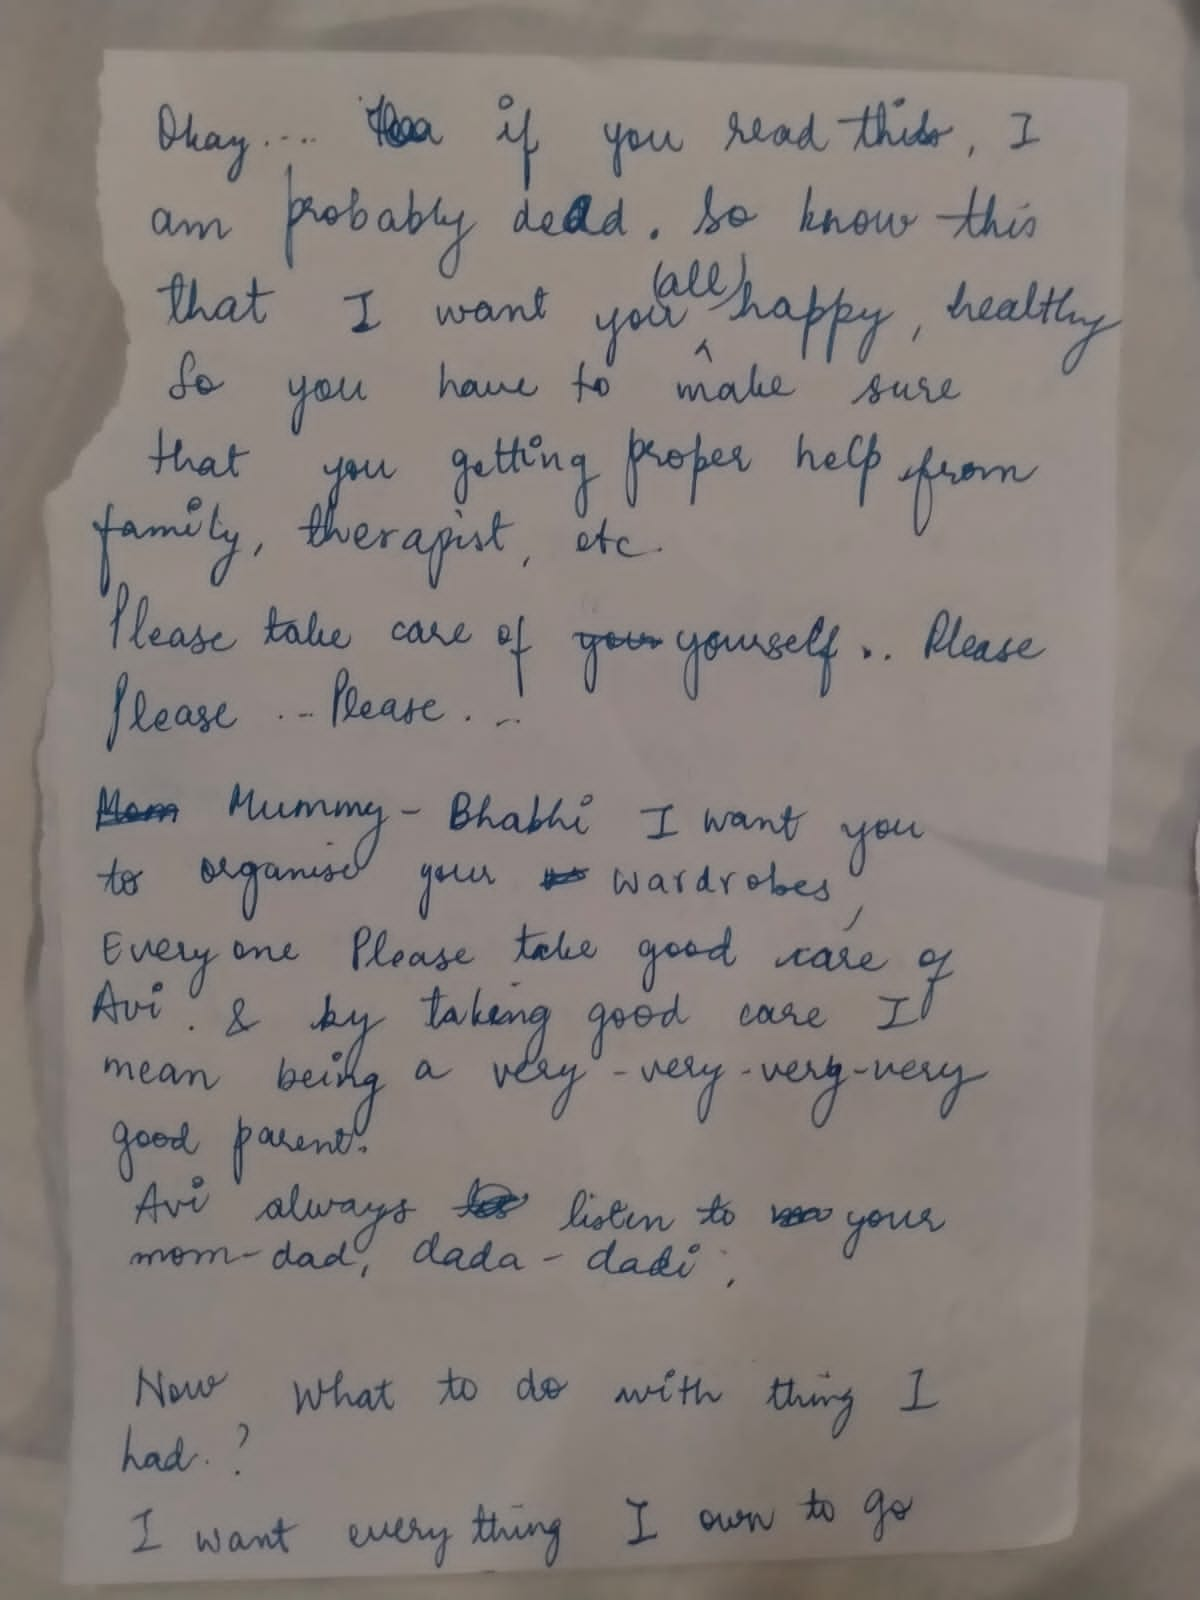 Okay.... if you read this, I
am probably dead. So know this
that I want you (all) happy, healthy
So you have to make sure
that you getting proper help from
family, therapist, etc.
Please take care of your yourself .. Please
Please ... Please ....
Mom Mummy - Bhabhi I want you
to organise your wardrobes,
Everyone Please take good care of
Avi. & by taking good care I
mean being a very - very - very - very
good parent.
Avi always listen to your
mom - dad, dada - dadi,
Now What to do with thing I
had. ?
I want every thing I own to go